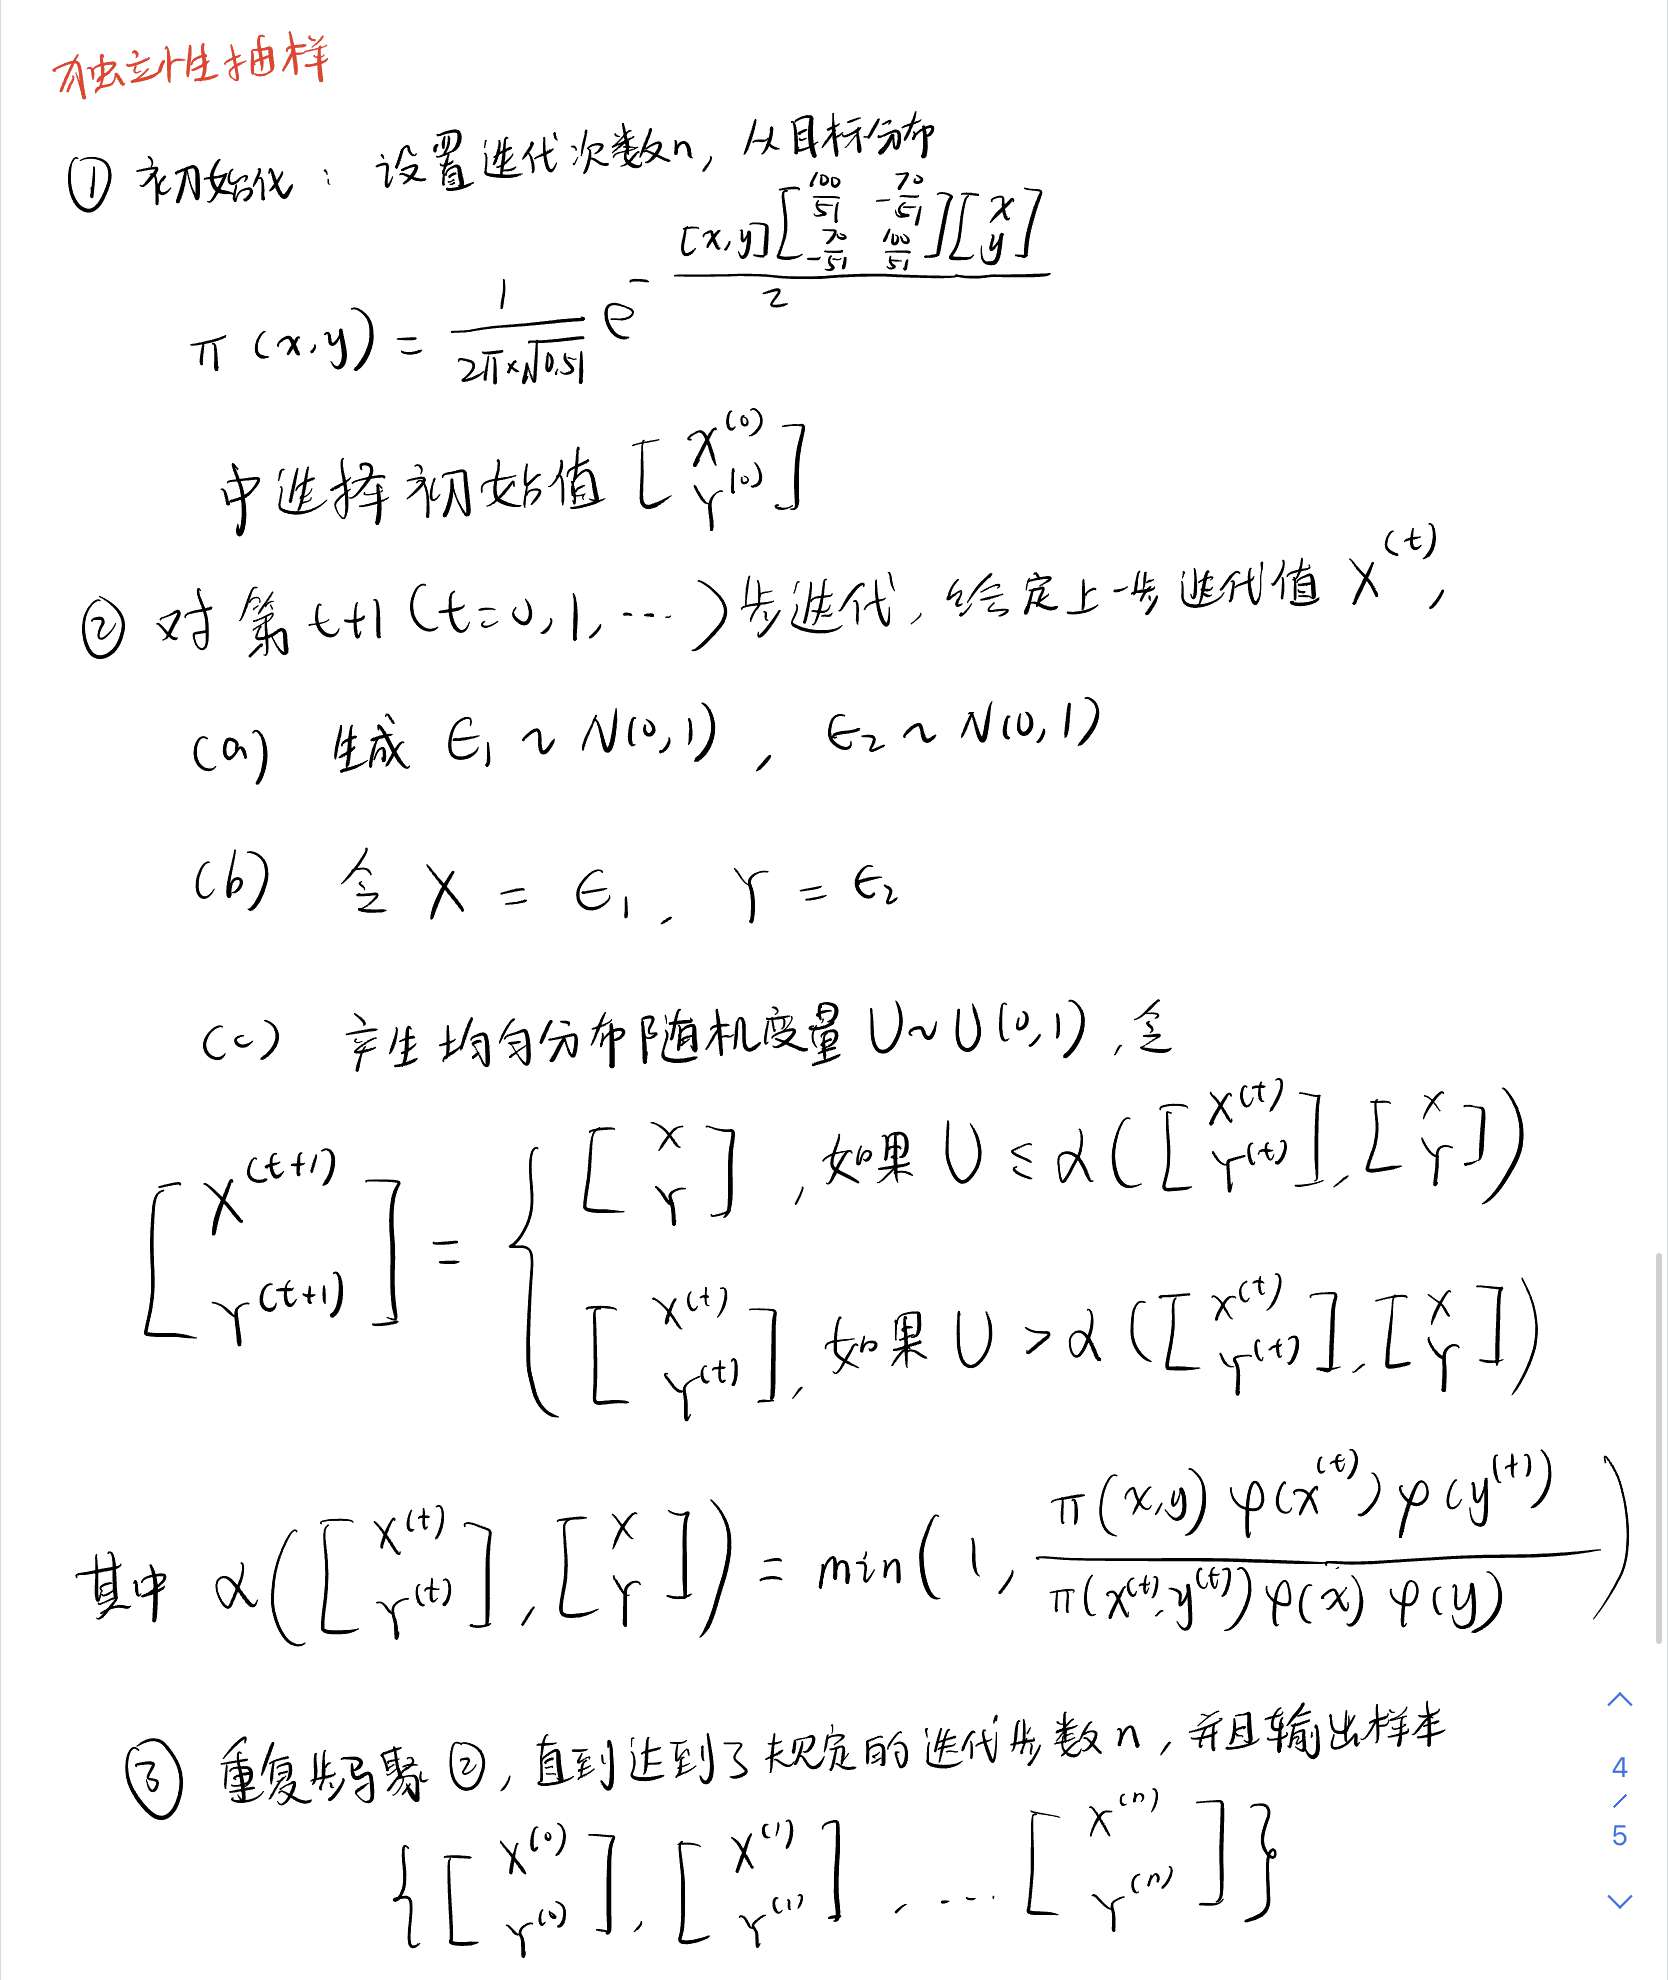 独立性抽样
① 初始化：设置迭代次数n，从目标分布
π(x,y) = \frac{1}{2π×\sqrt{0.51}} e^{-\frac{[x,y]\begin{bmatrix} \frac{100}{51} & -\frac{70}{51} \\ -\frac{70}{51} & \frac{100}{51} \end{bmatrix}\begin{bmatrix} x \\ y \end{bmatrix}}{2}}
中选择初始值 \begin{bmatrix} X^{(0)} \\ Y^{(0)} \end{bmatrix}
② 对第t+1(t=0,1,…)步迭代，给定上一步迭代值 X^{(t)}，
(a) 生成 ε₁ ~ N(0,1)，ε₂ ~ N(0,1)
(b) 令 X = ε₁，Y = ε₂
(c) 产生均匀分布随机变量 U~U(0,1)，令
\begin{bmatrix} X^{(t+1)} \\ Y^{(t+1)} \end{bmatrix} = \begin{cases} \begin{bmatrix} X \\ Y \end{bmatrix}, 如果 U ≤ α(\begin{bmatrix} X^{(t)} \\ Y^{(t)} \end{bmatrix}, \begin{bmatrix} X \\ Y \end{bmatrix}) \\ \begin{bmatrix} X^{(t)} \\ Y^{(t)} \end{bmatrix}, 如果 U > α(\begin{bmatrix} X^{(t)} \\ Y^{(t)} \end{bmatrix}, \begin{bmatrix} X \\ Y \end{bmatrix}) \end{cases}
其中 α(\begin{bmatrix} X^{(t)} \\ Y^{(t)} \end{bmatrix}, \begin{bmatrix} X \\ Y \end{bmatrix}) = min(1, \frac{π(x,y) φ(x^{(t)}) φ(y^{(t)})}{π(x^{(t)},y^{(t)}) φ(x) φ(y)})
③ 重复步骤②，直到达到了规定的迭代步数n，并且输出样本
{\begin{bmatrix} X^{(0)} \\ Y^{(0)} \end{bmatrix}, \begin{bmatrix} X^{(1)} \\ Y^{(1)} \end{bmatrix}, … \begin{bmatrix} X^{(n)} \\ Y^{(n)} \end{bmatrix}}
4
/
5